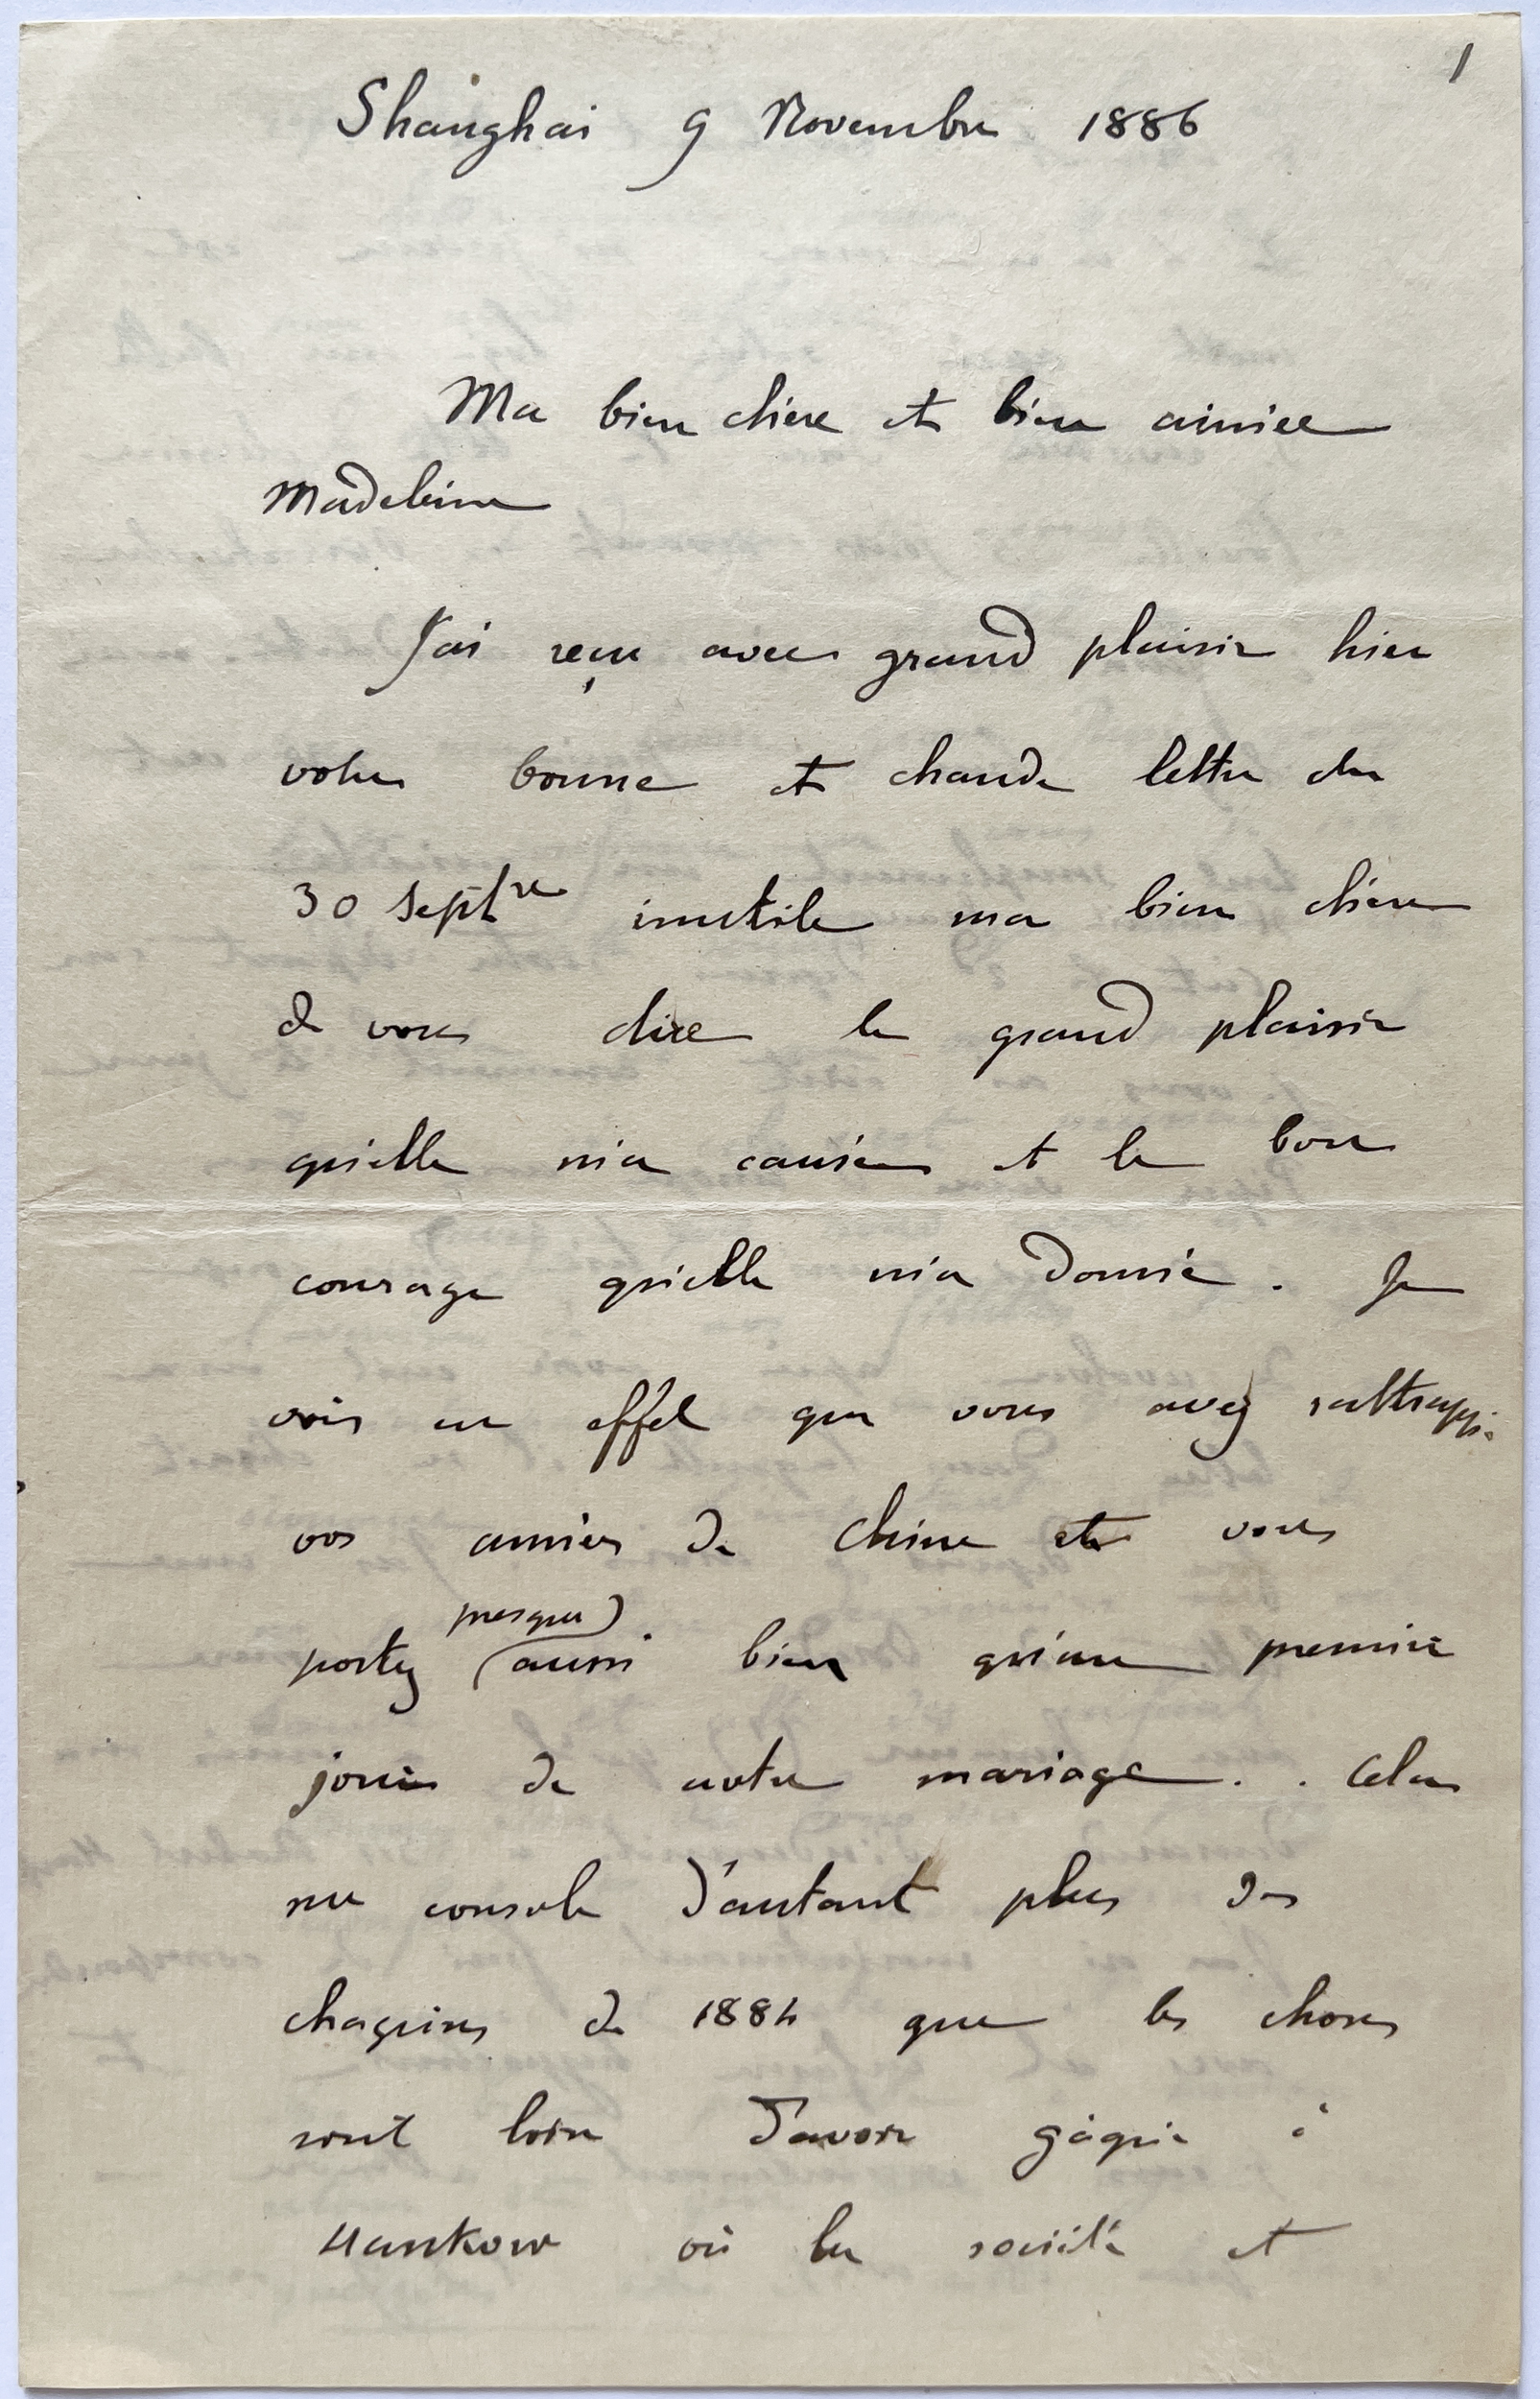 1
Shanghai 9 Novembre 1886
Ma bien chère et bien aimée
Madeleine
J'ai reçu avec grand plaisir hier
votre bonne et chaude lettre du
30 Septre inutile ma bien chère
de vous dire le grand plaisir
qu'elle m'a causé et le bon
courage qu'elle m'a donné. Je
vois en effet que vous avez rattrappé
vos amies de Chine et vous
presque
portez (aussi bien qu'au premier
jour de notre mariage.. Cela
me console d'autant plus des
chagrins de 1884 que les choses
sont loin d'avoir gagné à
Hankow où la société et